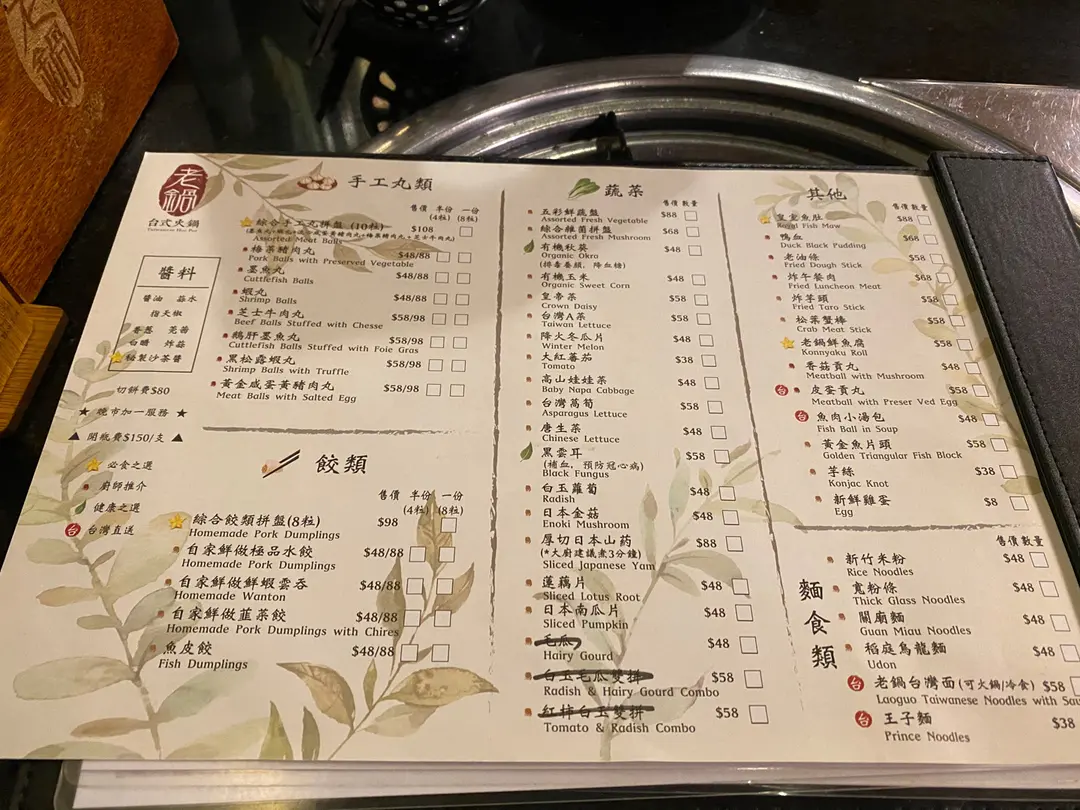 老鍋
老鍋
台式火鍋
Taiwanese Hot Pot
醬料
醬油 蒜水
指天椒
香蔥 芫茜
白醋 炸蒜
秘製沙茶醬
切餅費$80
★ 晚市加一服務 ★
▲ 開瓶費$150/支 ▲
必食之選
廚師推介
健康之選
台 台灣直送
手工丸類
售價 半份 一份
(4粒) (8粒)
綜合手工丸拼盤 (10粒) $108
Assorted Meat Balls
梅菜豬肉丸 $48/88
Pork Balls with Preserved Vegetable
墨魚丸 $48/88
Cuttlefish Balls
蝦丸 $48/88
Shrimp Balls
芝士牛肉丸 $58/98
Beef Balls Stuffed with Chesse
鵝肝墨魚丸 $58/98
Cuttlefish Balls Stuffed with Foie Gras
黑松露蝦丸 $58/98
Shrimp Balls with Truffle
黃金咸蛋黃豬肉丸 $58/98
Meat Balls with Salted Egg
餃類
售價 半份 一份
(4粒) (8粒)
綜合餃類拼盤(8粒) $98
Homemade Pork Dumplings
自家鮮做極品水餃 $48/88
Homemade Pork Dumplings
自家鮮做鮮蝦雲吞 $48/88
Homemade Wanton
自家鮮做韮菜餃 $48/88
Homemade Pork Dumplings with Chires
魚皮餃 $48/88
Fish Dumplings
蔬菜
售價 數量
五彩鮮蔬盤 $88
Assorted Fresh Vegetable
綜合雜菌拼盤 $68
Assorted Fresh Mushroom
有機秋葵 $48
Organic Okra
(排毒養顏, 降血糖)
有機玉米 $48
Organic Sweet Corn
皇帝菜 $58
Crown Daisy
台灣A菜 $58
Taiwan Lettuce
降火冬瓜片 $48
Winter Melon
大紅蕃茄 $38
Tomato
高山娃娃菜 $48
Baby Napa Cabbage
台灣萵筍 $58
Asparagus Lettuce
唐生菜 $48
Chinese Lettuce
黑雲耳 $58
(補血, 預防冠心病)
Black Fungus
白玉蘿蔔 $48
Radish
日本金菇 $48
Enoki Mushroom
厚切日本山药 $88
(*大廚建議煮3分鐘)
Sliced Japanese Yam
蓮藕片 $48
Sliced Lotus Root
日本南瓜片 $48
Sliced Pumpkin
毛瓜 $48
Hairy Gourd
白玉毛瓜雙拼 $58
Radish & Hairy Gourd Combo
紅柿白玉雙拼 $58
Tomato & Radish Combo
其他
售價 數量
皇室魚肚 $88
Royal Fish Maw
鴨血 $68
Duck Black Pudding
老油條 $58
Fried Dough Stick
炸午餐肉 $68
Fried Luncheon Meat
炸芋頭 $58
Fried Taro Stick
松葉蟹棒 $58
Crab Meat Stick
老鍋鮮魚腐 $58
Konnyaku Roll
香菇貢丸 $48
Meatball with Mushroom
台 皮蛋貢丸 $58
Meatball with Preser Ved Egg
台 魚肉小湯包 $48
Fish Ball in Soup
黃金魚片頭 $58
Golden Triangular Fish Block
芋絲 $38
Konjac Knot
新鮮雞蛋 $8
Egg
麵食類
售價 數量
新竹米粉 $48
Rice Noodles
寬粉條 $48
Thick Glass Noodles
關廟麵 $48
Guan Miau Noodles
稻庭烏龍麵 $48
Udon
台 老鍋台灣面(可火鍋/冷食) $58
Laoguo Taiwanese Noodles with Sau
台 王子麵 $38
Prince Noodles